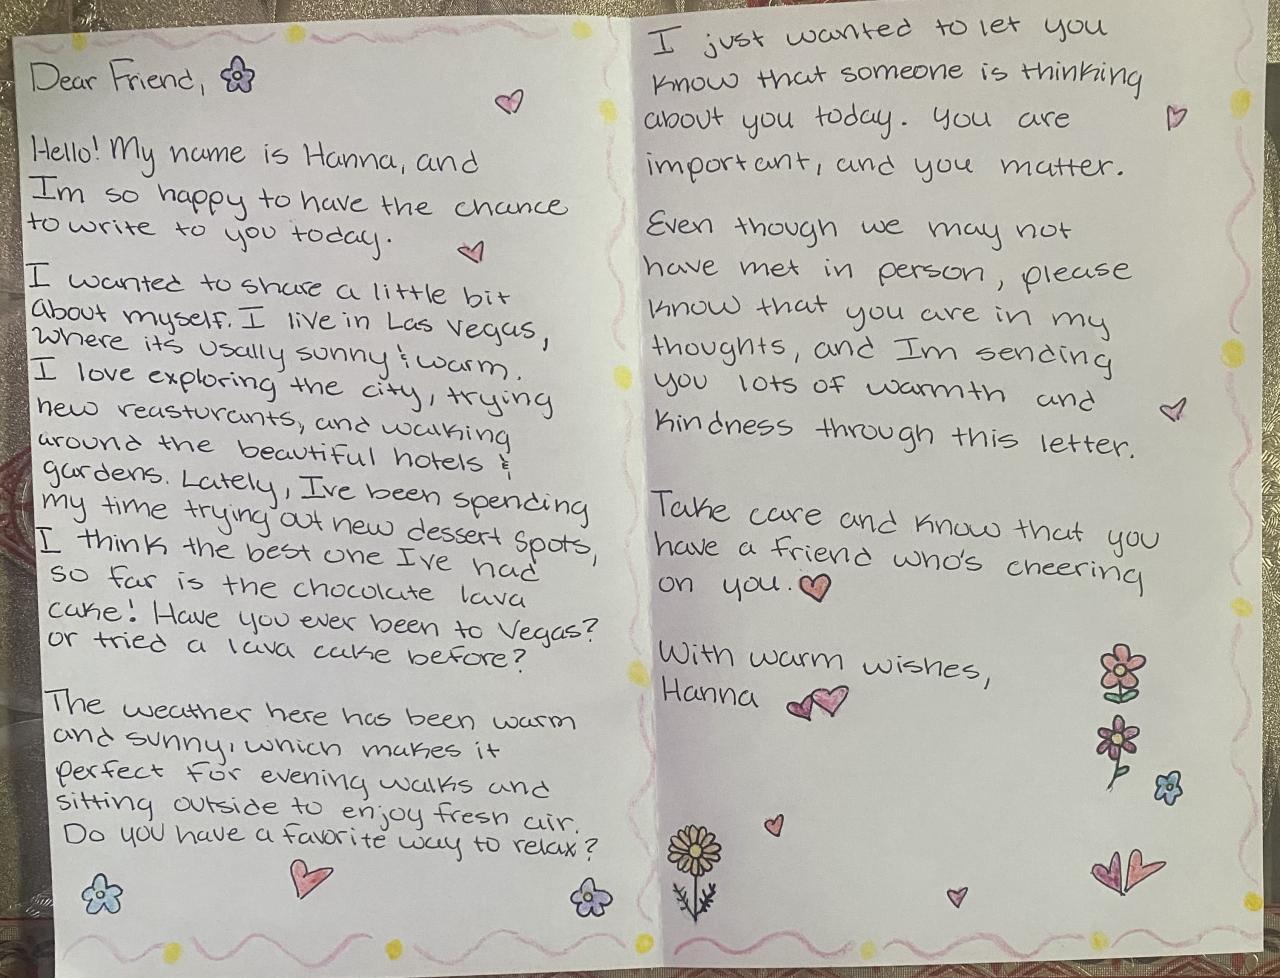 Dear Friend,
Hello! My name is Hanna, and
Im so happy to have the chance
to write to you today.
I wanted to share a little bit
about myself. I live in Las Vegas,
where its usally sunny & warm.
I love exploring the city, trying
new reasturants, and walking
around the beautiful hotels &
gardens. Lately, Ive been spending
my time trying out new dessert spots,
I think the best one I've had
so far is the chocolate lava
cake! Have you ever been to Vegas?
or tried a lava cake before?
The weather here has been warm
and sunny, which makes it
perfect for evening walks and
sitting outside to enjoy fresh air.
Do you have a favorite way to relax?
I just wanted to let you
know that someone is thinking
about you today. You are
important, and you matter.
Even though we may not
have met in person, please
know that you are in my
thoughts, and Im sending
you lots of warmth and
kindness through this letter.
Take care and know that you
have a friend who's cheering
on you.
With warm wishes,
Hanna